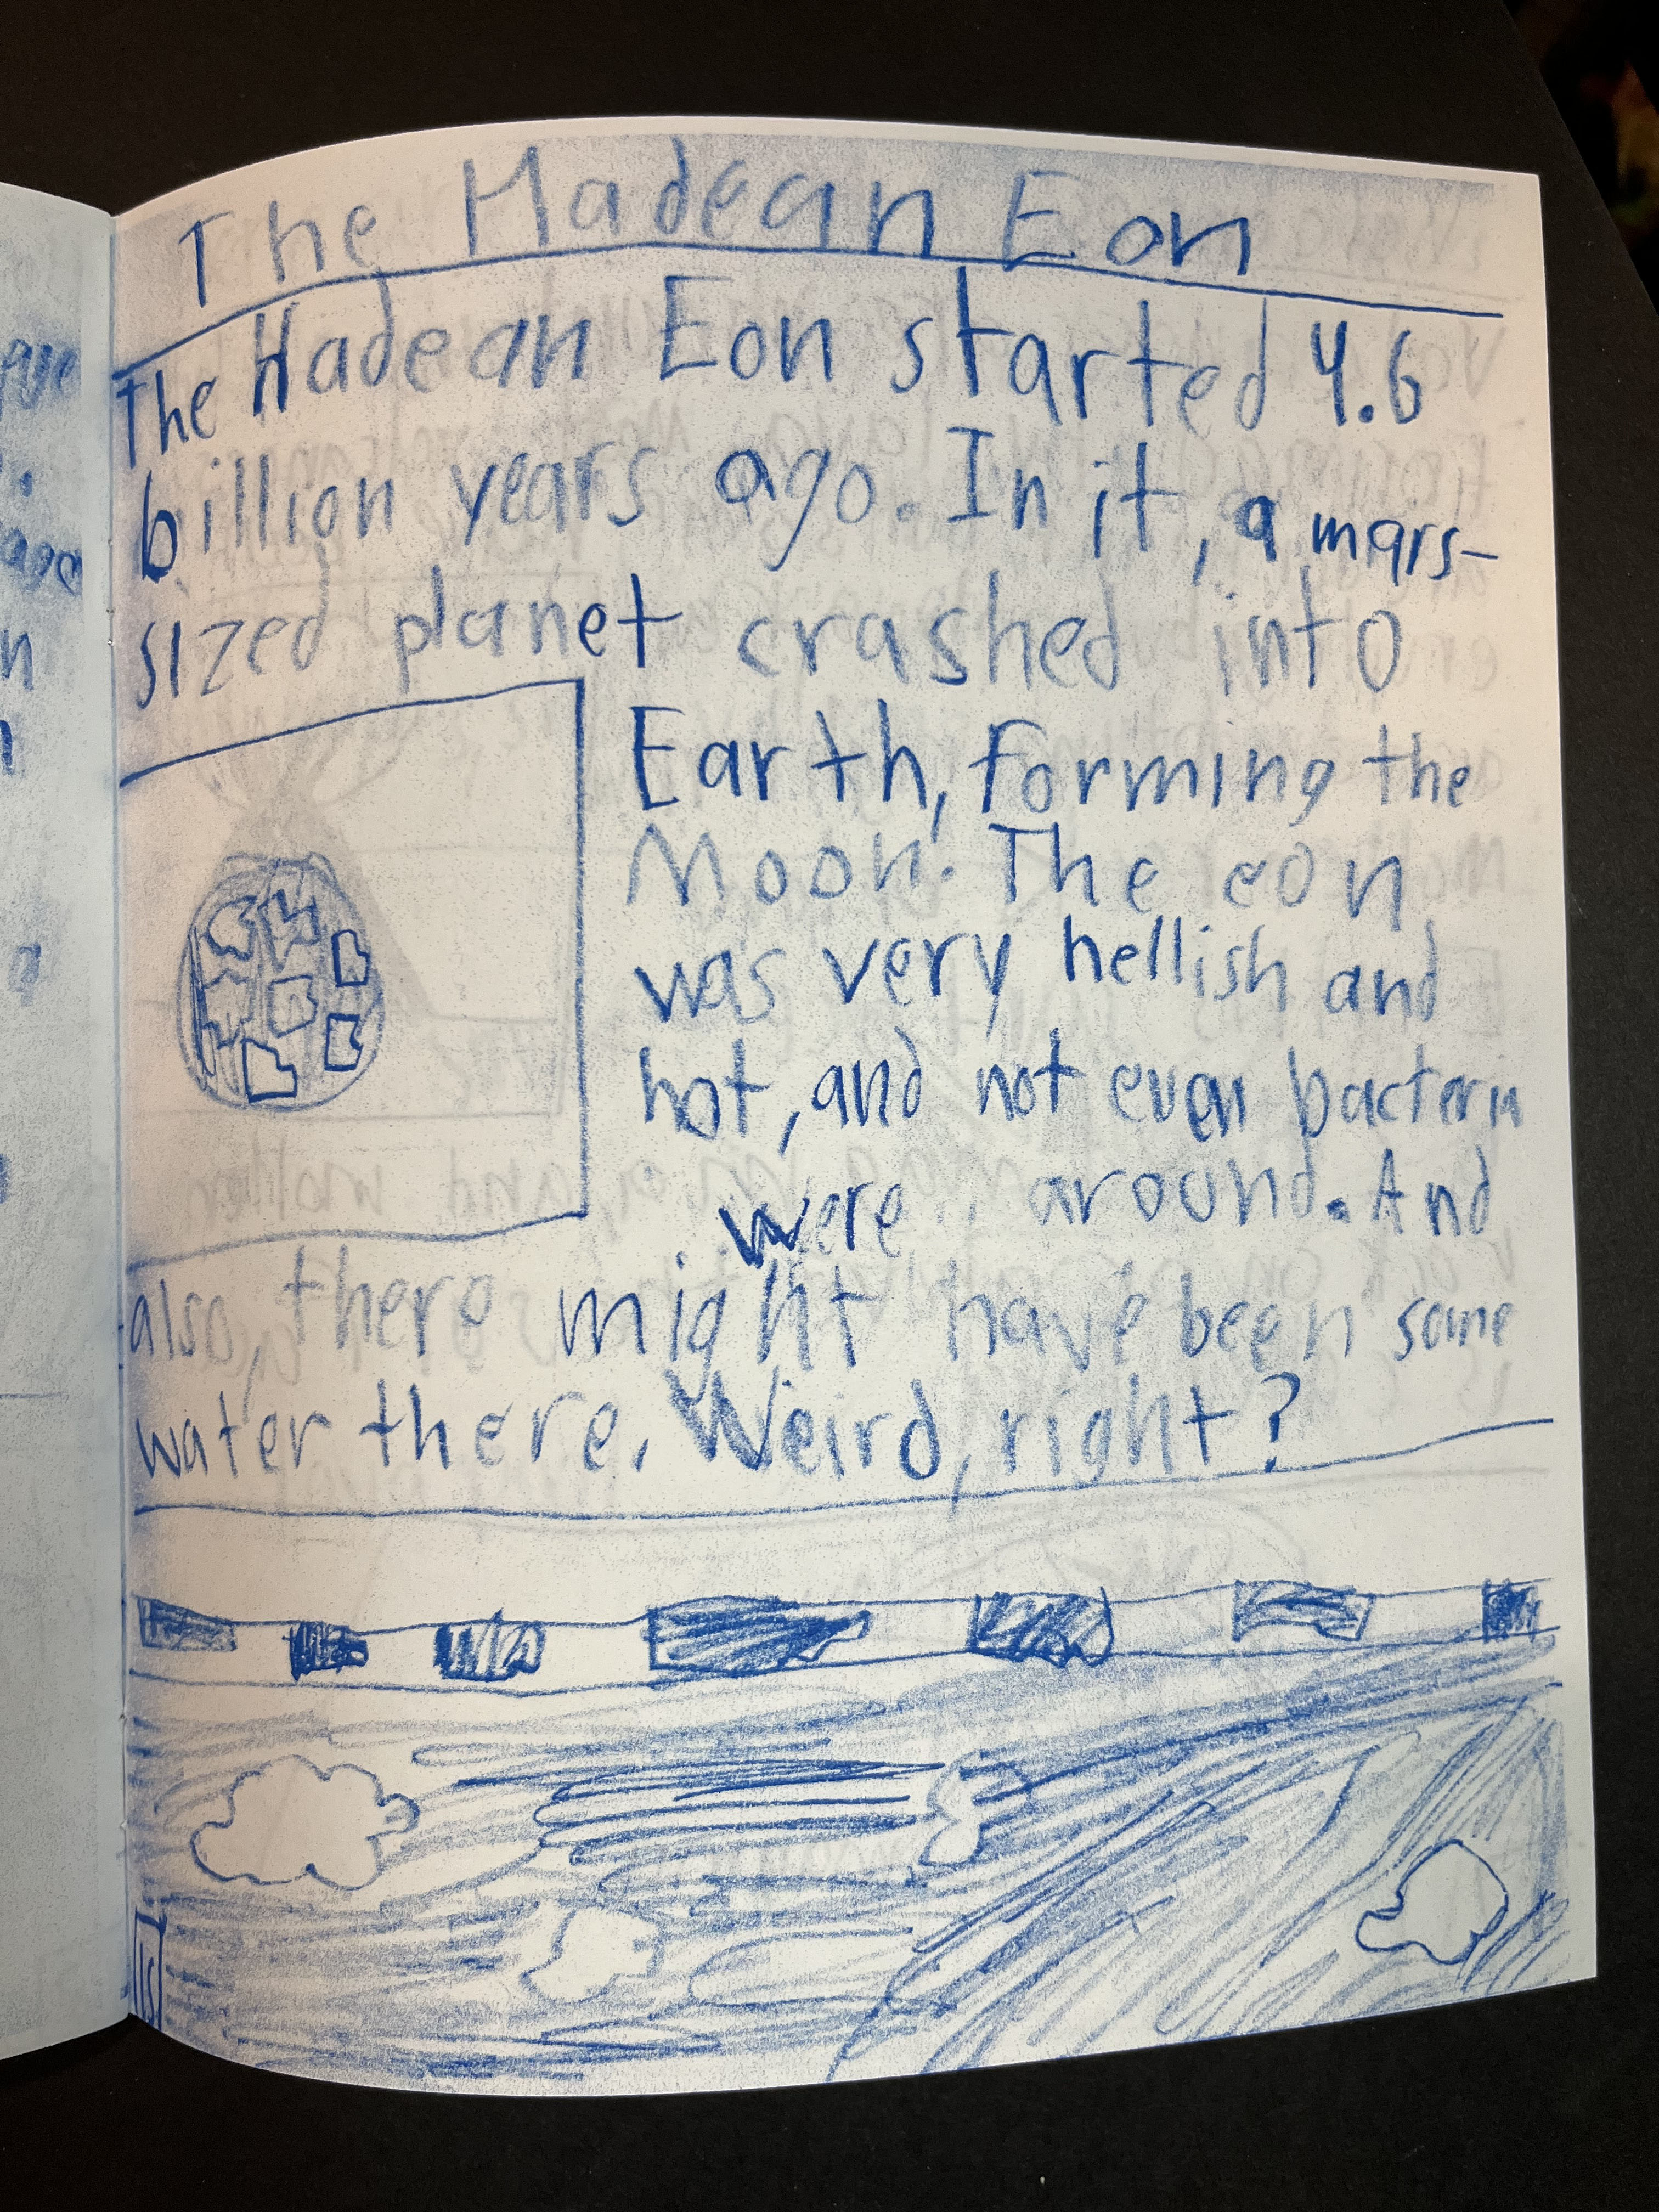 The Hadean Eon
The Hadean Eon started 4.6
billion years ago. In it, a mars-
sized planet crashed into
Earth, forming the
Moon. The eon
was very hellish and
hot, and not even bacteria
were around. And
also, there might have been some
water there. Weird, right?